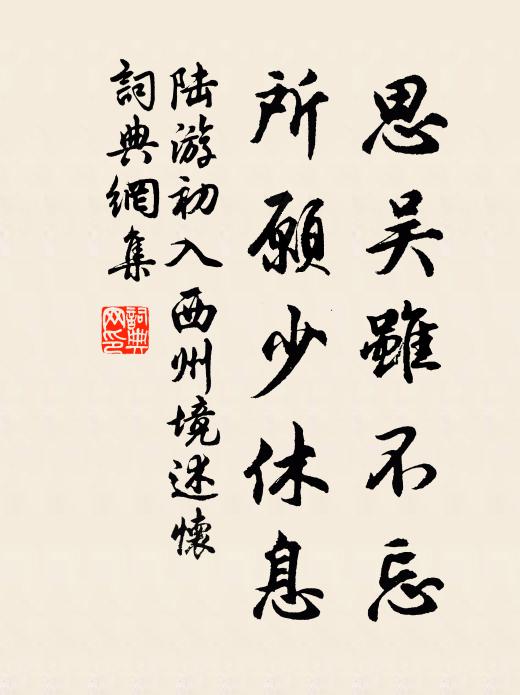 思吴雖不忘
所願少休息
陆游初入西州境述懷
詞典網集
詞典网印